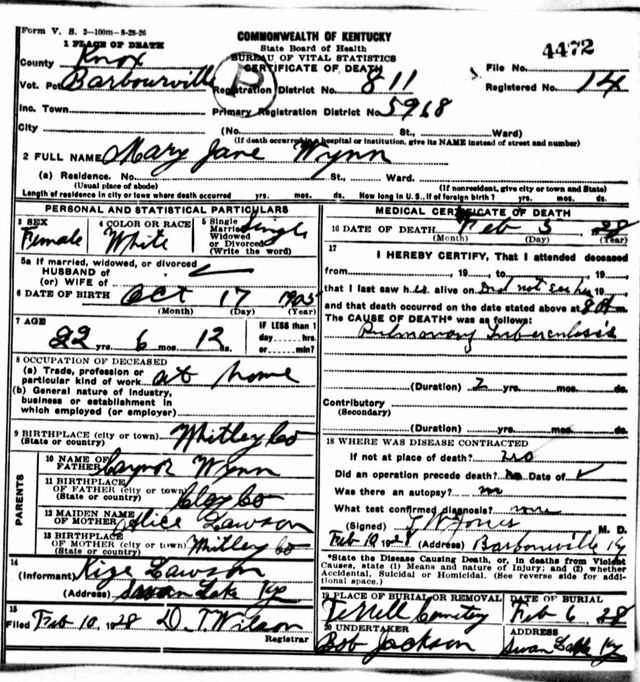 Form V. S. 2-100m-8-28-26
COMMONWEALTH OF KENTUCKY
State Board of Health
BUREAU OF VITAL STATISTICS
CERTIFICATE OF DEATH
4472
1 PLACE OF DEATH
County Knox
File No.
Vot. Pct Barbourville
B
Registration District No. 811
Registered No. 14
Inc. Town
Primary Registration District No. 5968
City (No. St., Ward)
(If death occurred in a hospital or institution, give its NAME instead of street and number)
2 FULL NAME Mary Jane Wynn
(a) Residence. No. St., Ward.
(Usual place of abode) (If nonresident, give city or town and State)
Length of residence in city or town where death occurred yrs. mos. ds. How long in U. S., if of foreign birth? yrs. mos. ds.
PERSONAL AND STATISTICAL PARTICULARS
3 SEX Female
4 COLOR OR RACE White
5 Single Married Widowed or Divorced (Write the word) Single
5a If married, widowed, or divorced
HUSBAND of
(or) WIFE of
6 DATE OF BIRTH Oct 17 1905
(Month) (Day) (Year)
7 AGE 22 yrs. 6 mos. 12 ds.
IF LESS than 1
day hrs.
or min.?
8 OCCUPATION OF DECEASED
(a) Trade, profession or
particular kind of work at home
(b) General nature of industry,
business or establishment in
which employed (or employer)
9 BIRTHPLACE (city or town) Whitley Co
(State or country)
PARENTS
10 NAME OF
FATHER Wynn
11 BIRTHPLACE
OF FATHER (city or town) Clay Co
(State or country)
12 MAIDEN NAME
OF MOTHER Alice Lawson
13 BIRTHPLACE
OF MOTHER (city or town) Whitley Co
(State or country)
14
(Informant) Lawson
(Address) Swan Lake Ky
15
Filed Feb 10, 1928 D. T. Wilson
Registrar
MEDICAL CERTIFICATE OF DEATH
16 DATE OF DEATH Feb 5 28
(Month) (Day) (Year)
17
I HEREBY CERTIFY, That I attended deceased
from , 19 , to , 19 ,
that I last saw h er alive on Did not see her , 19 ,
and that death occurred on the date stated above at 8 m.
The CAUSE OF DEATH* was as follows:
Pulmonary Tuberculosis
(Duration) 2 yrs. mos. ds.
Contributory
(Secondary)
(Duration) yrs. mos. ds.
18 WHERE WAS DISEASE CONTRACTED
If not at place of death? no
Did an operation precede death? no Date of
Was there an autopsy? no
What test confirmed diagnosis? none
(Signed) Jones M. D.
Feb 10 1928 (Address) Barbourville Ky
*State the Disease Causing Death, or, in deaths from Violent
Causes, state (1) Means and nature of Injury; and (2) whether
Accidental, Suicidal or Homicidal. (See reverse side for addi-
tional space.)
19 PLACE OF BURIAL OR REMOVAL Terrell Cemetery
DATE OF BURIAL Feb 6 28
20 UNDERTAKER Bob Jackson
ADDRESS Swan Lake Ky